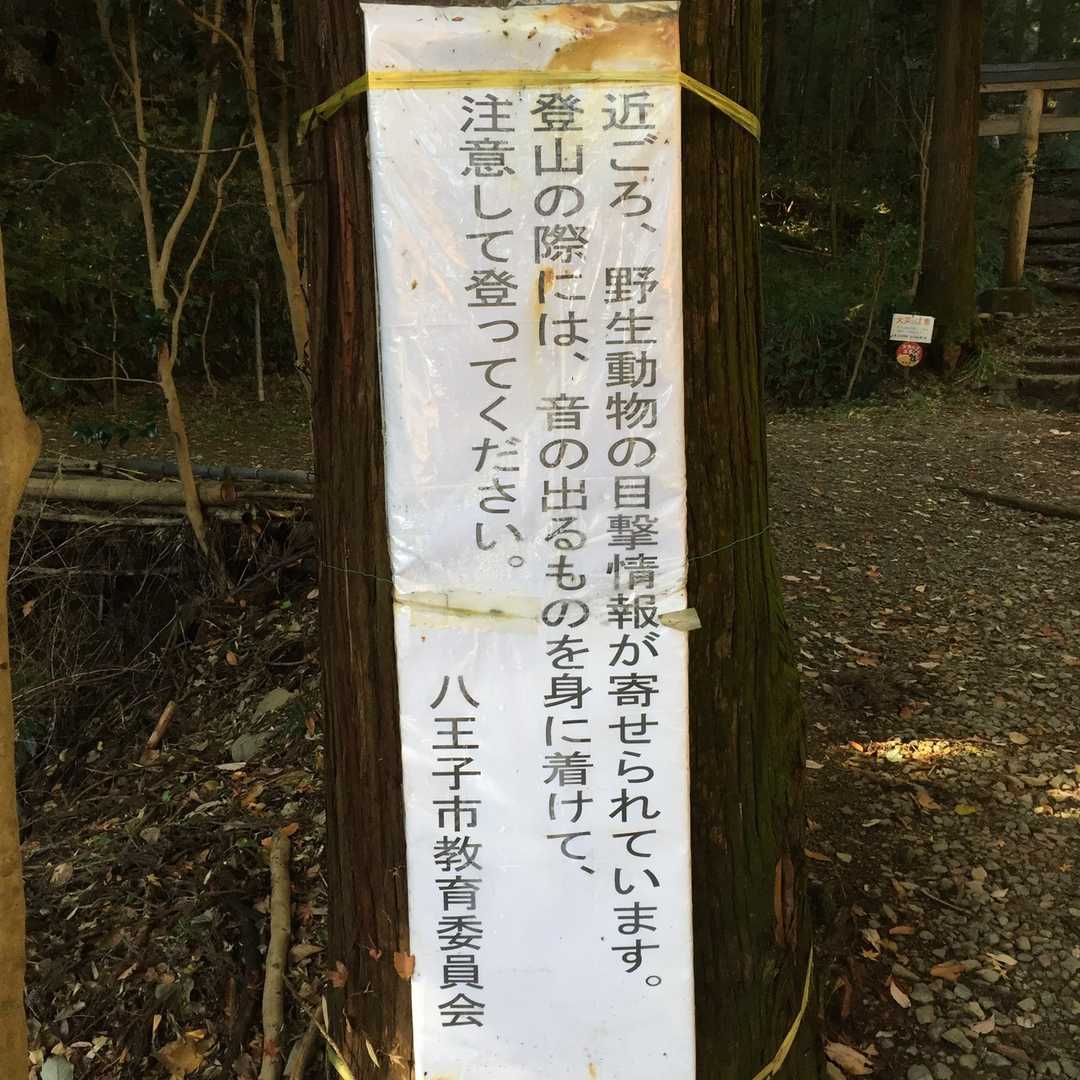 近ごろ、野生動物の目撃情報が寄せられています。
登山の際には、音の出るものを身に着けて、
注意して登ってください。
八王子市教育委員会